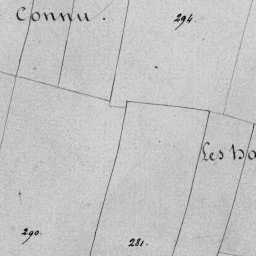 Connu.
294.
Les
290.
281.